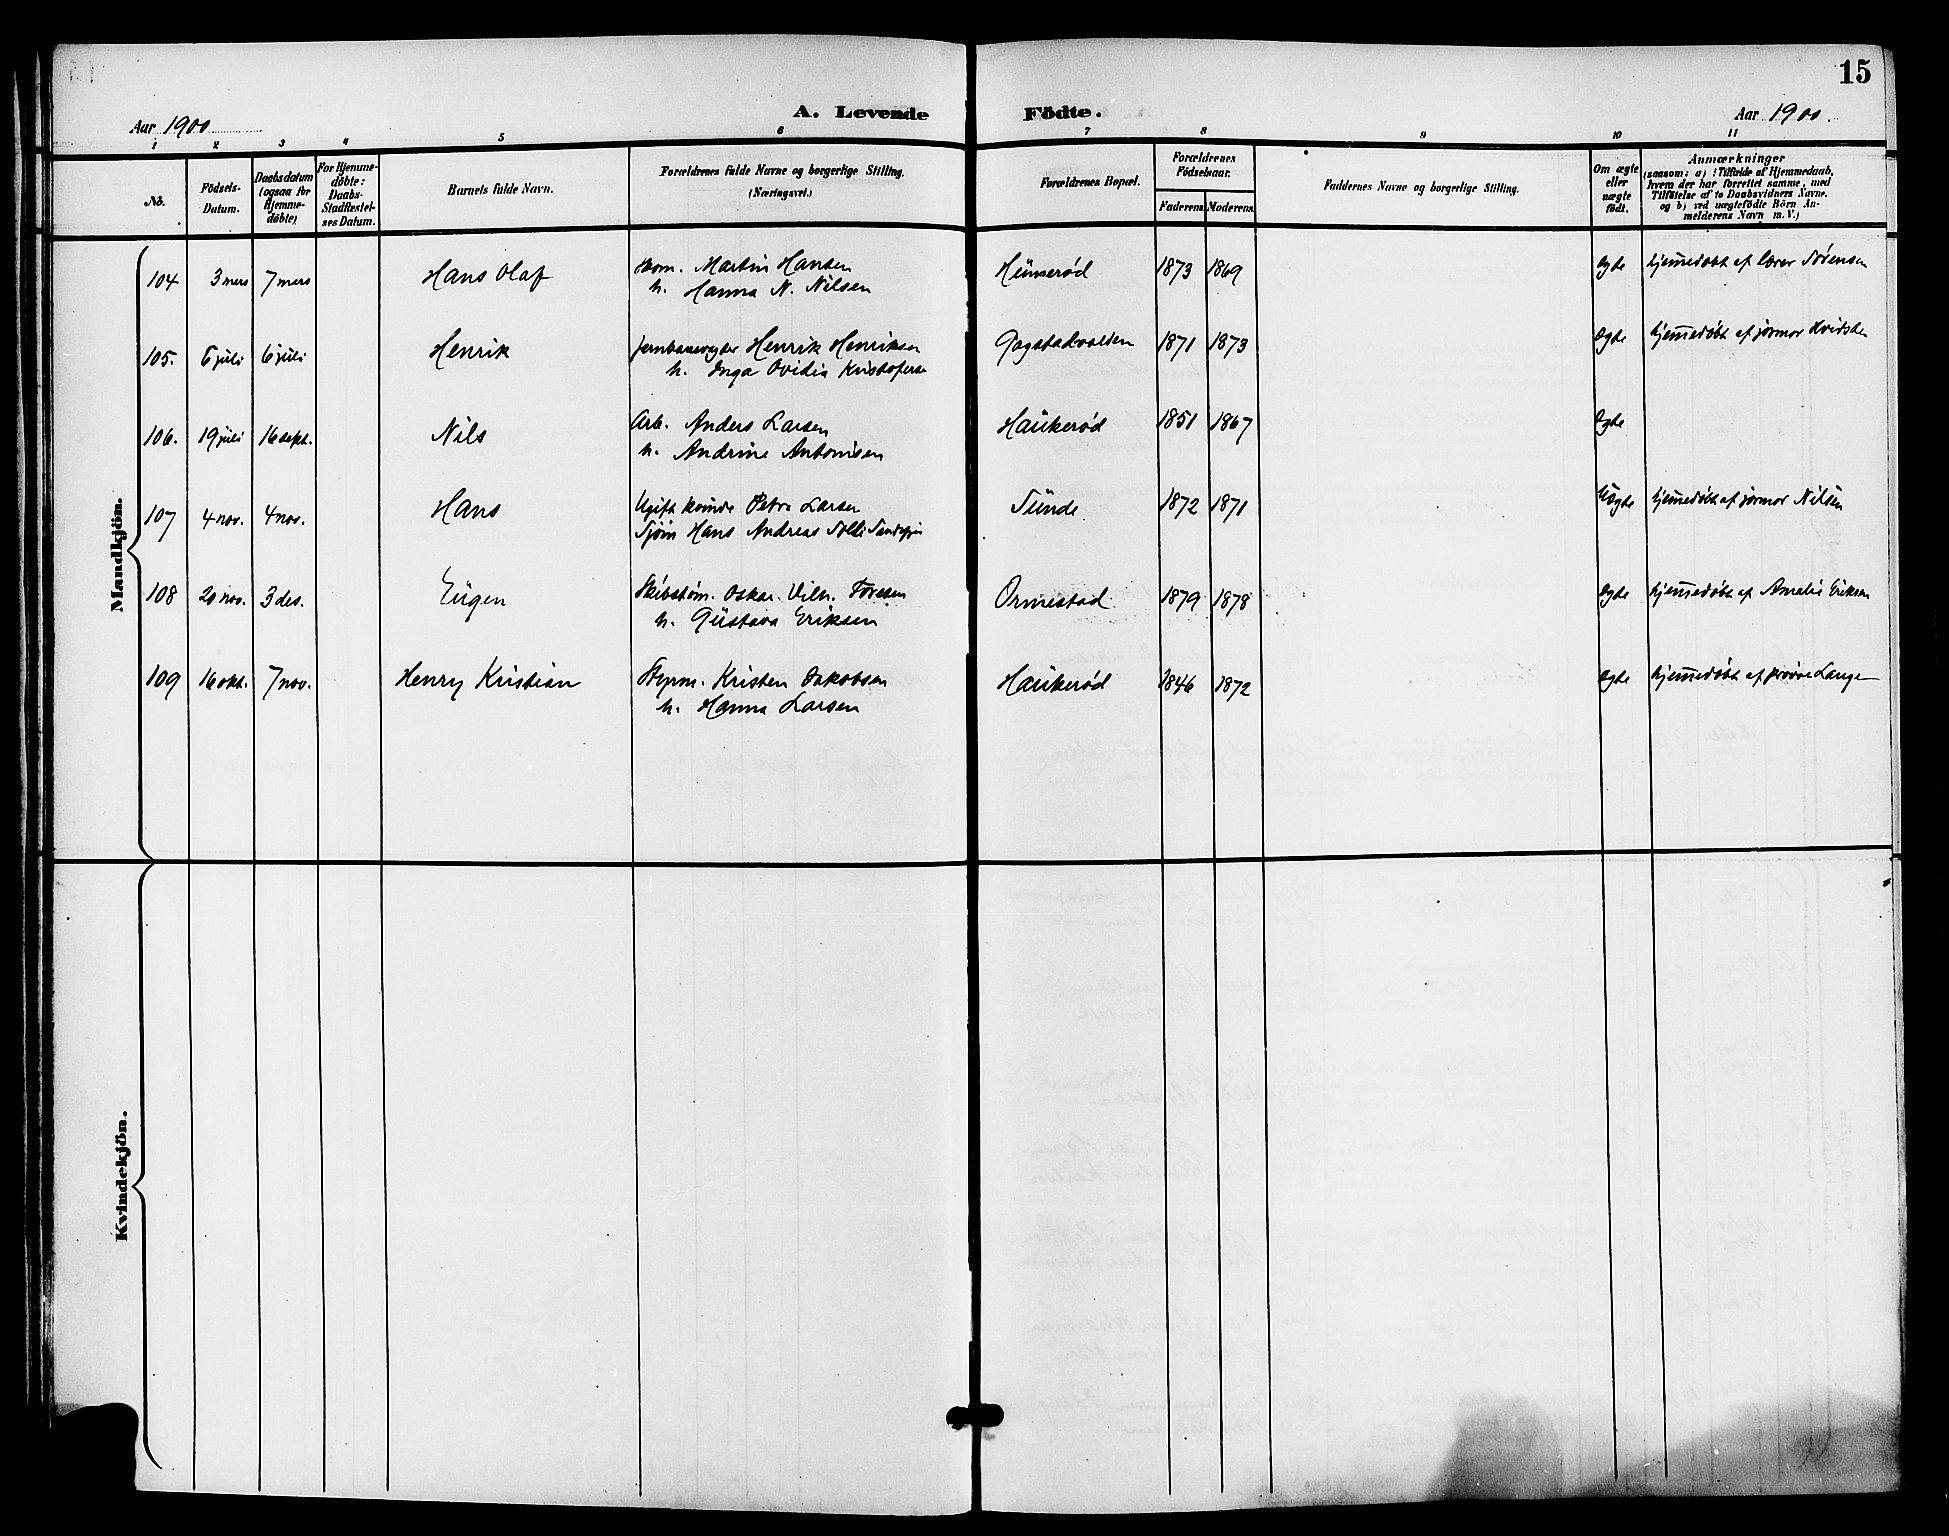 15
Aar 1900
A. Levende Födte.
Aar 1900.
1 2 3 4 5 6 7 8 9 10 11
No.
Födsels-Datum.
Daabsdatum (ogsaa for Hjemme-döbte)
For Hjemme-döbte: Daabs-Stadfæstel-ses Datum.
Barnets fulde Navn.
Forældrenes fulde Navne og borgerlige Stilling.
(Næringsvei.)
Forældrenes Bopæl.
Forældrenes Födselsaar.
Faderens
Moderens
Faddernes Navne og borgerlige Stilling.
Om ægte eller uægte födt.
Anmærkninger
(saasom: a) i Tilfælde af Hjemmedaab,
hvem der har forrettet samme, med
Tilföielse af to Daabsvidners Navne.
og b) ved uægtefödte Börn An-
melderens Navn m. V.)
Mandkjön.
104 3 mers 7 mers Hans Olaf Skom. Martin Hansen Hünserød 1873 1869 Ægte hjemmedøbt af lærer Sørensen
h. Hanna N. Nilsen
105. 6 juli 6 juli Henrik jernbanevogter Henrik Henriksen 1871 1873 Ægte hjemmedøbt af jormor Hvidsten
h. Inga Ovidia Kristofersen
106. 19 juli 16 sept. Nils Arb. Anders Larsen Haükerød 1851 1867 Ægte
h. Andrine Antonisen
107 4 nov. 4 nov. Hans Ugift kvinde Petra Larsen Sünde 1872 1871 Uægte hjemmedøbt af jormor Nilsen
Sjøm Hans Andreas Solli Sandefjord
108 20 nov. 3 des. Eügen Skibstøm. Oskar Vilh. Toresen Ormestad 1879 1878 Ægte hjemmedøbt af Amalie Eriksen
h. Güstava Eriksen
109 16 okt. 7 nov. Henry Kristian Styrm. Kristen Jakobsen Haükerød 1846 1872 Ægte hjemmedøbt af Lange
h. Hanna Larsen
Kvindekjön.